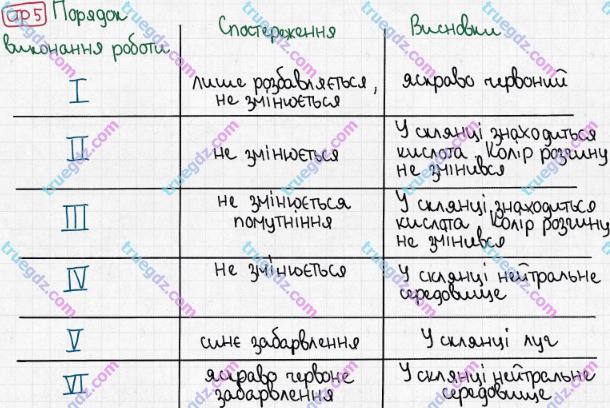 ПР 5 Порядок виконання роботи
Спостереження
Висновки
I
лише розбавляється,
не змінюється
яскраво червоний
II
не змінюється
У склянці знаходиться
кислота. Колір розчину
не змінився
III
не змінюється
помутніння
У склянці знаходиться
кислота. Колір розчину
не змінився
IV
не змінюється
У склянці нейтральне
середовище
V
синє забарвлення
У склянці луг
VI
яскраво червоне
забарвлення
У склянці нейтральне
середовище
truegdz.com